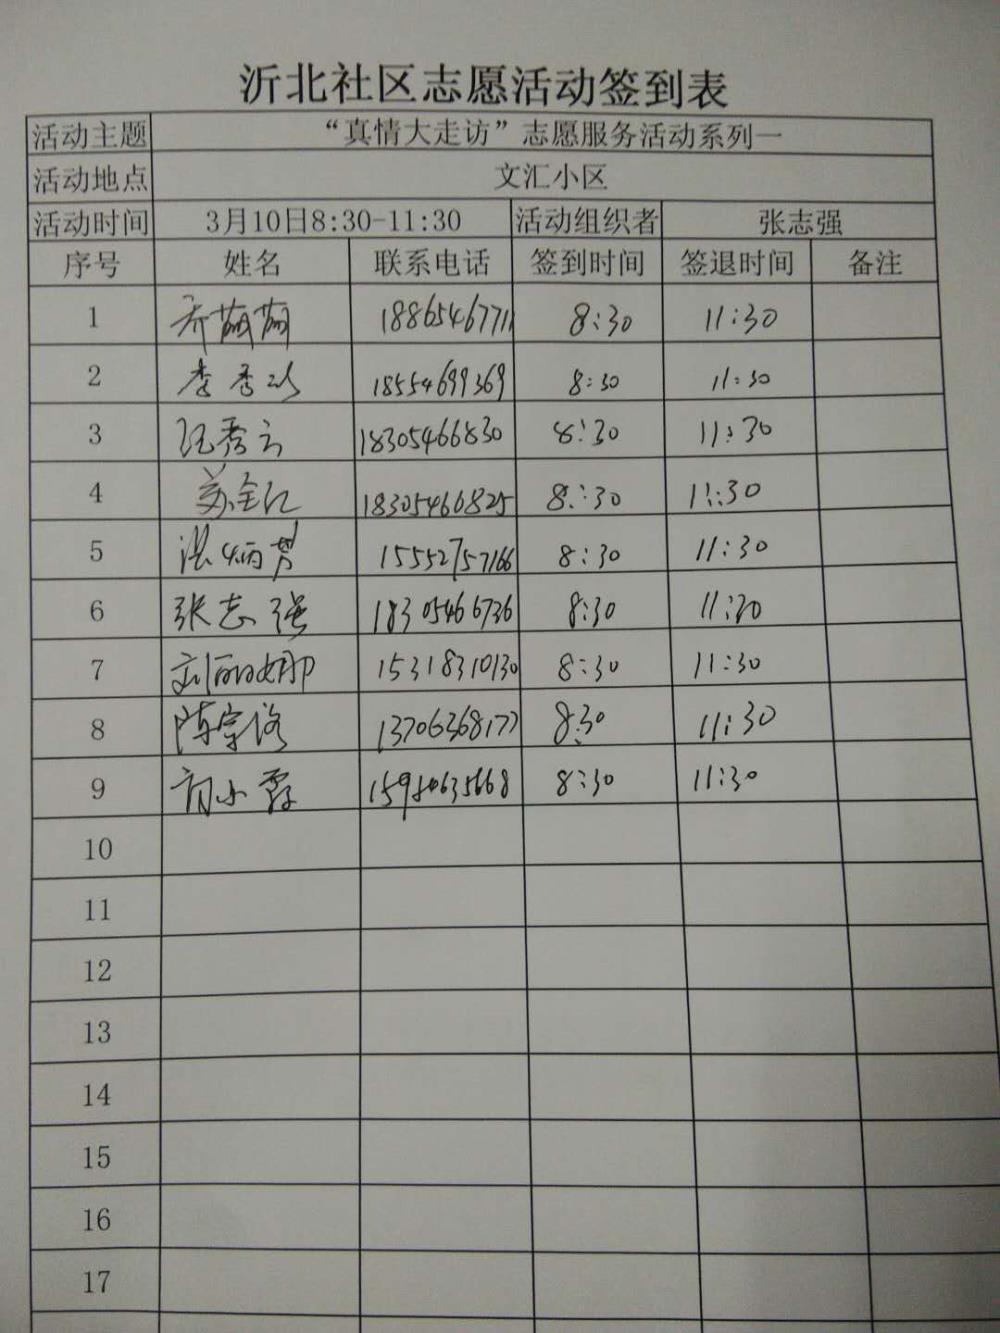 沂北社区志愿活动签到表
活动主题 “真情大走访”志愿服务活动系列一
活动地点 文汇小区
活动时间 3月10日8:30-11:30 活动组织者 张志强
序号 姓名 联系电话 签到时间 签退时间 备注
1 乔萌萌 18865467711 8:30 11:30
2 李秀 18554699369 8:30 11:30
3 秀云 18305466830 8:30 11:30
4 苏全江 18305460825 8:30 11:30
5 炳芳 15552757166 8:30 11:30
6 张志强 18305466736 8:30 11:30
7 刘丽娜 15318310130 8:30 11:30
8 陈宗 13706368177 8:30 11:30
9 小霞 15980635668 8:30 11:30
10
11
12
13
14
15
16
17